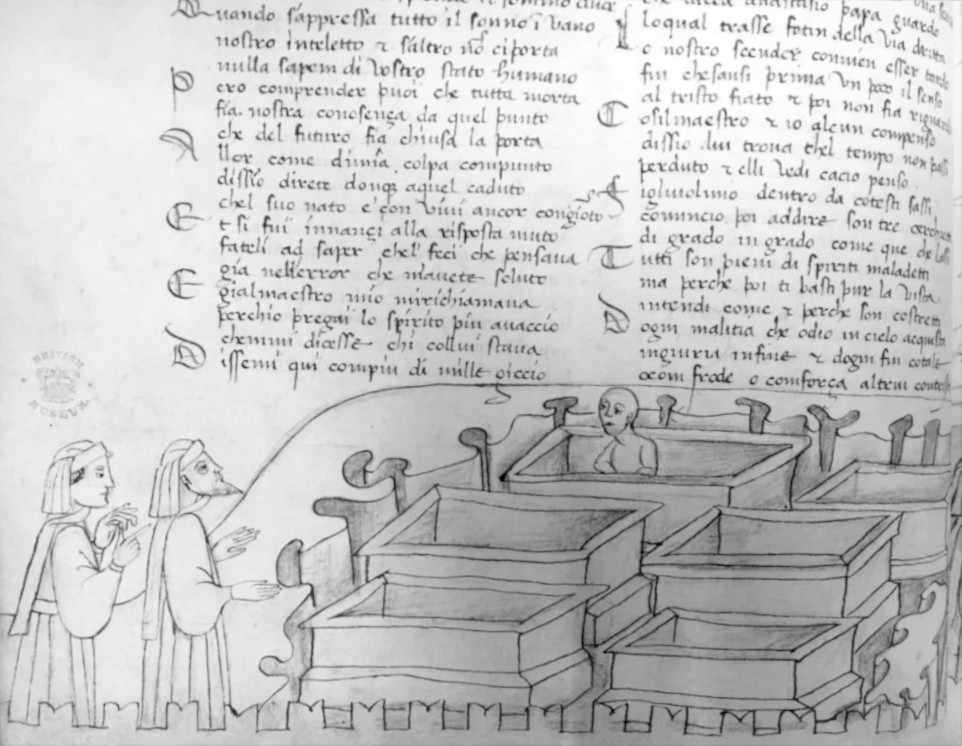 uando sappressa tutto il sonno i vano
nostro inteletto & saltro nō ci porta
nulla sapem di vostro stato humano
Pero comprender puoi che tutta morta
fia. nostra conosença da quel punto
che del futuro fia chiusa la porta
Allor come dimia colpa compunto
dissio direte donqȝ aquel caduto
chel suo nato e con vivi ancor congioto
Et si fui innançi alla risposta muto
fateli ad saper chel feci che pensava
gia nellerror che mavete soluto
E gialmaestro mio mirichiamava
perchio pregai lo spirito piu avaccio
chemmi dicesse chi collui stava
Dissemi qui compiu di mille giccio
papa guardo
loqual trasse fotin della via dritta
Lo nostro scender convien esser tardo
fin chesausi prima un poco il senso
al tristo fiato & poi non fia riguardo
Cosilmaestro & io alcun compenso
dissio lui trova chel tempo non passi
perduto & elli vedi cacio penso
Figluiolmio dentro da cotesti sassi
comincio poi addire son tre cerch
di grado in grado come que che lassi
Tutti son pieni di spiriti maladetti
ma perche poi ti basti pur la vista
intendi come & perche son costretti
Dogni malitia che odio in cielo acquista
ingiuria infine & dogni fin cotale
ocom frode o comforça altrui contrista
BRITISH
MUSEUM